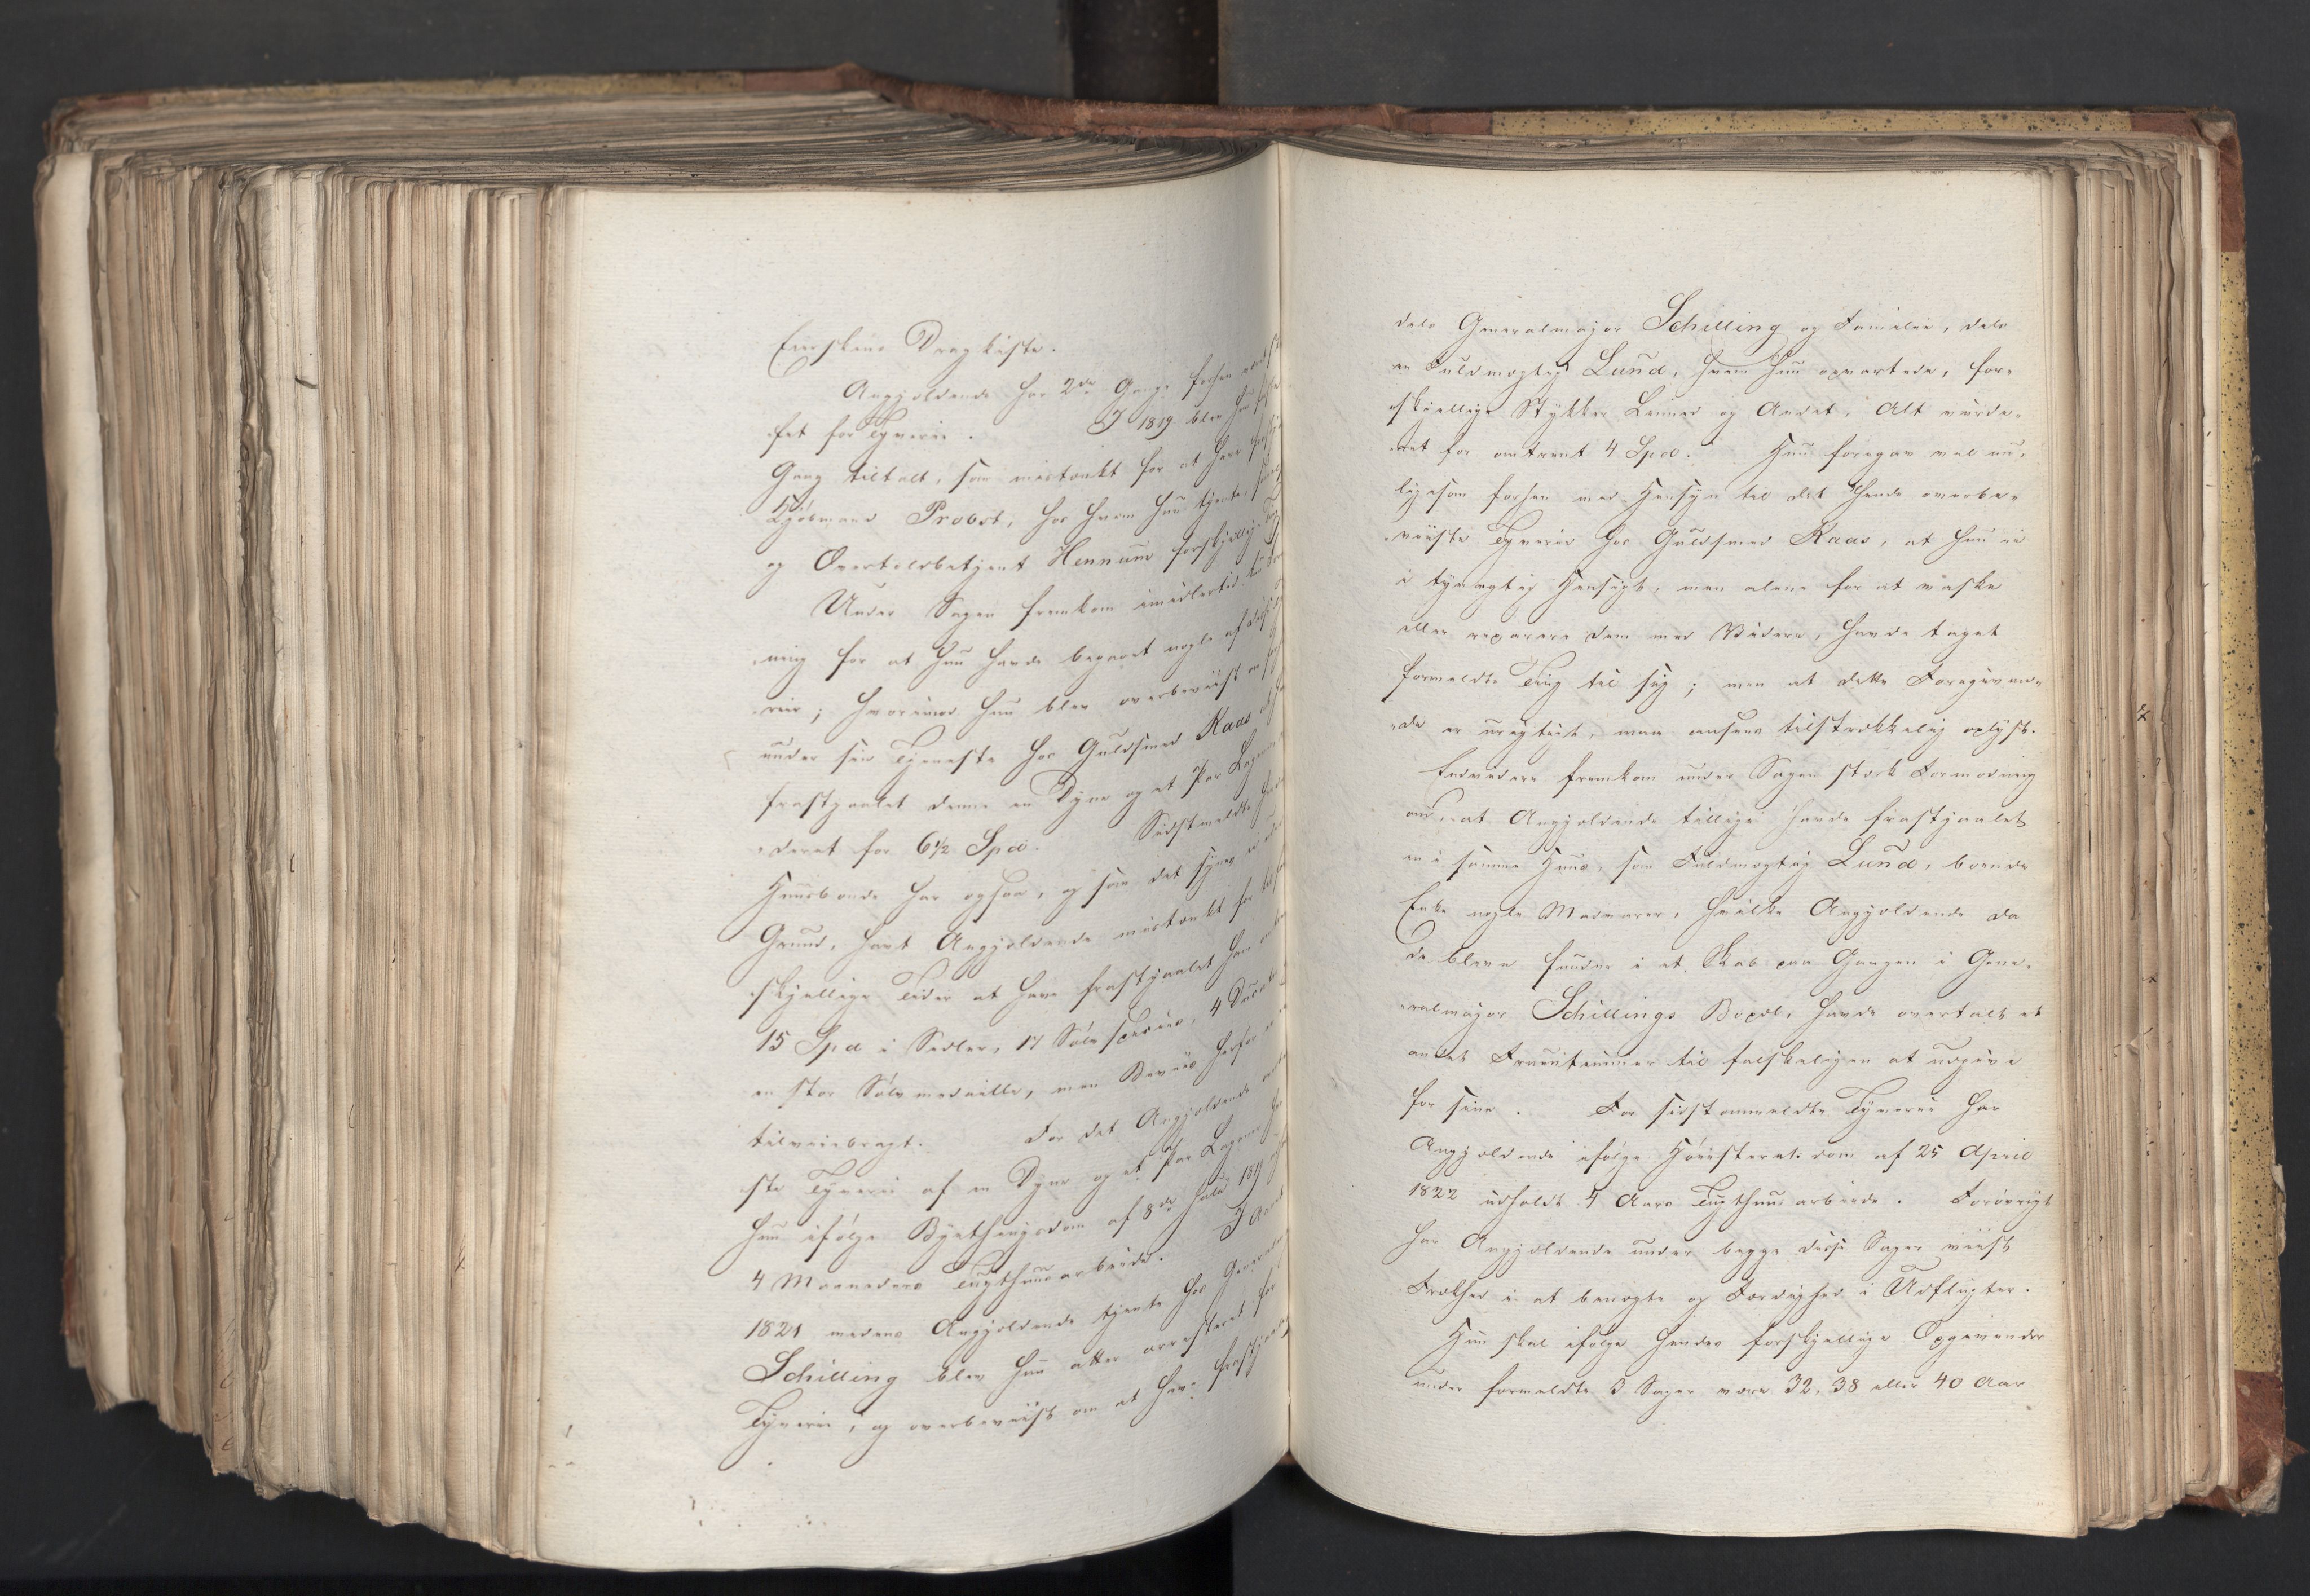 Enersens Dragkiste.
Angjældende har 2de Gange forhen været
tet for Tyverie. I 1819 blev hun første
Gang tiltalt, som mistænkt for at have
Kjøbmand Probst, hos hvem hun tjente
og Overtoldbetjent Hennum forskjellige
Under Sagen fremkom imidlertid
ning for at hun havde begaaet nogle af disse
rier; hvorimod hun blev overbeviist om
under sin Tjeneste hos Guldsmed Raas at
frastjaalet denne en Dyne og et Par Lagener
deret for 6½ Spd. Sidstmeldte
Huusbonde har ogsaa, og som det synes
Grund, havt Angjældende mistænkt for til
skjellige Tider at have frastjaalet ham
15 Spd i Sedler, 17 Sølvspecies, 4 Ducater
en stor Sølvmedaille, men Beviis herfor
tilveiebragt. For det Angjældende
ste Tyverie af en Dyne og et Par Lagener har
hun ifølge Byethingsdom af 8de Julii 1819
4 Maaneders Tugthuusarbeide. I
1821 medens Angjældende tjente hos General
Schilling blev hun atter arresteret for
Tyverie, og overbeviist om at have frastjaalet
dels Generalmajor Schilling og Familie, dels
en Fuldmægtig Lund, hvem hun opvartede, for-
skjellige Stykker Linned og Andet, Alt vurde-
ret for omtrent 4 Spd. Hun foregav vel nu,
ligesom forhen med Hensyn til det hende overbe-
viiste Tyverie hos Guldsmed Raas, at hun ei
i tyvagtig Hensigt, men alene for at vaske
eller reparere dem med Videre, havde taget
formeldte Ting til sig; men at dette Foregiven-
de er urigtigt, maa ansees tilstrækkelig oplyst.
Endvidere fremkom under Sagen stærk Formodning
om, at Angjældende tillige havde frastjaalet
en i samme Huus, som Fuldmægtig Lund, boende
Enke nogle Madvarer, hvilke Angjældende da
de bleve fundne i et Skab paa Gangen i Gene-
ralmajor Schillings Bopæl, havde overtalt et
andet Fruentimmer til falskeligen at udgive
for sine. For sidstanmeldte Tyverie har
Angjældende ifølge Høiesteretsdom af 25 April
1822 udholdt 4 Aars Tugthuusarbeide. Forøvrigt
har Angjældende under begge disse Sager viist
Frækhed i at benægte og Færdighed i Udflugter.
Hun skal ifølge hendes forskjellige Opgivender
under formeldte 3 Sager være 32, 38 eller 40 Aar